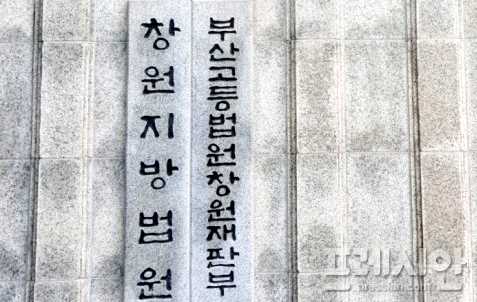 창원지방법원
부산고등법원창원재판부
프레시안
pressian.com